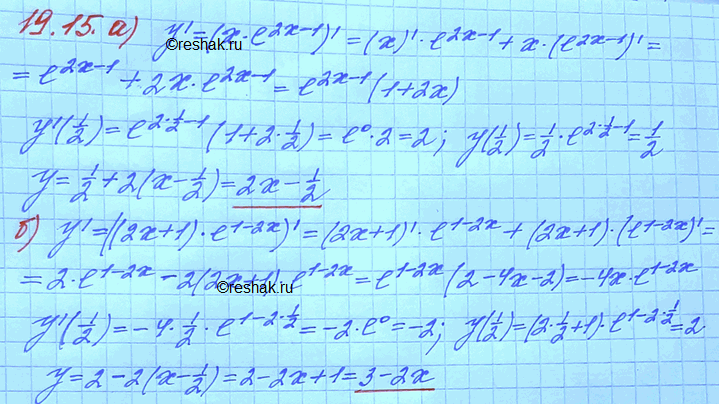 19.15. а) y' = (x·e^(2x−1))' = (x)'·e^(2x−1) + x·(e^(2x−1))' =
©reshak.ru
= e^(2x−1) + 2x·e^(2x−1) = e^(2x−1)(1+2x)
y'(1/2) = e^(2·1/2−1)(1+2·1/2) = e^0·2 = 2; y(1/2) = 1/2·e^(2·1/2−1) = 1/2
y = 1/2 + 2(x − 1/2) = 2x − 1/2
б) y' = ((2x+1)·e^(1−2x))' = (2x+1)'·e^(1−2x) + (2x+1)·(e^(1−2x))' =
= 2·e^(1−2x) − 2(2x+1)·e^(1−2x) = e^(1−2x)(2−4x−2) = −4x·e^(1−2x)
©reshak.ru
y'(1/2) = −4·1/2·e^(1−2·1/2) = −2·e^0 = −2; y(1/2) = (2·1/2+1)·e^(1−2·1/2) = 2
y = 2 − 2(x − 1/2) = 2 − 2x + 1 = 3 − 2x